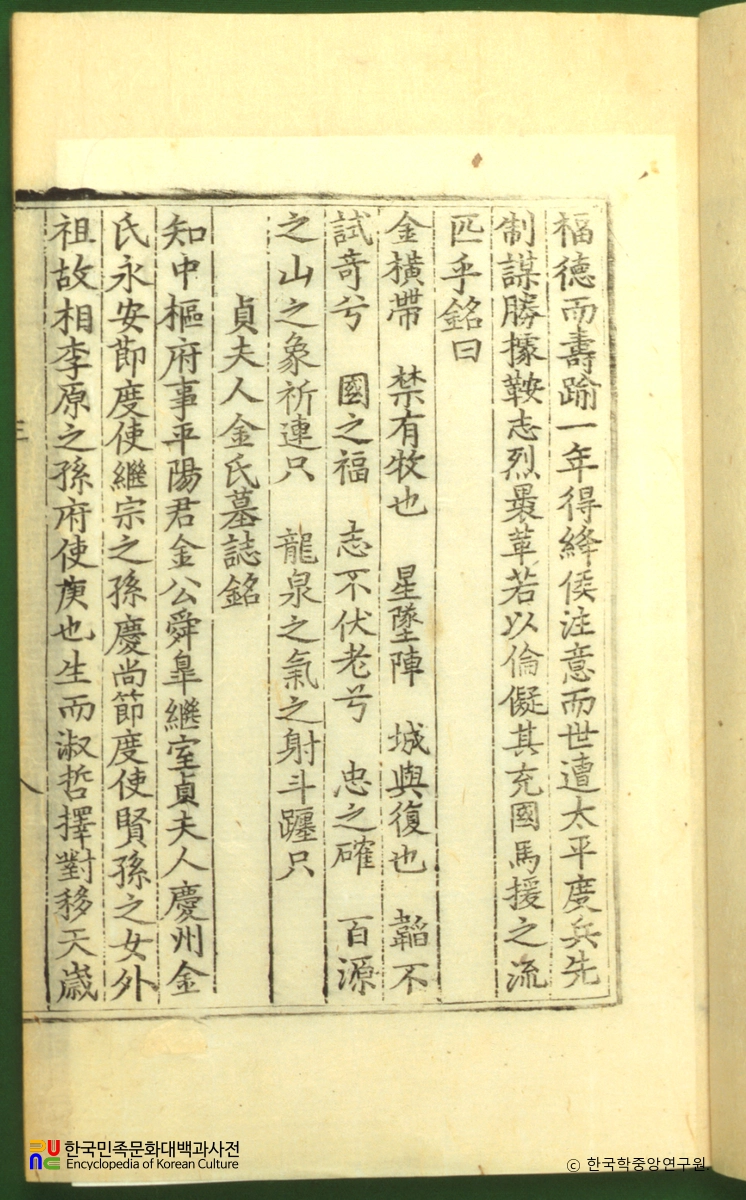 福德而壽踰一年得絳侯注意而世遭太平度兵先
制謀勝據鞍志烈㝡草若以倫儗其充國馬援之流
匹乎銘曰
金橫帶 禁有牧也 星墜陣 城與復也 韜不
試奇兮 國之福 志不伏老兮 忠之確 百源
之山之象祈連只 龍泉之氣之射斗躔只
貞夫人金氏墓誌銘
知中樞府事平陽君金公舜皐繼室貞夫人慶州金
氏永安節度使繼宗之孫慶尚節度使賢孫之女外
祖故相李原之孫府使庚也生而淑哲擇對移天歲
한국민족문화대백과사전
Encyclopedia of Korean Culture
© 한국학중앙연구원